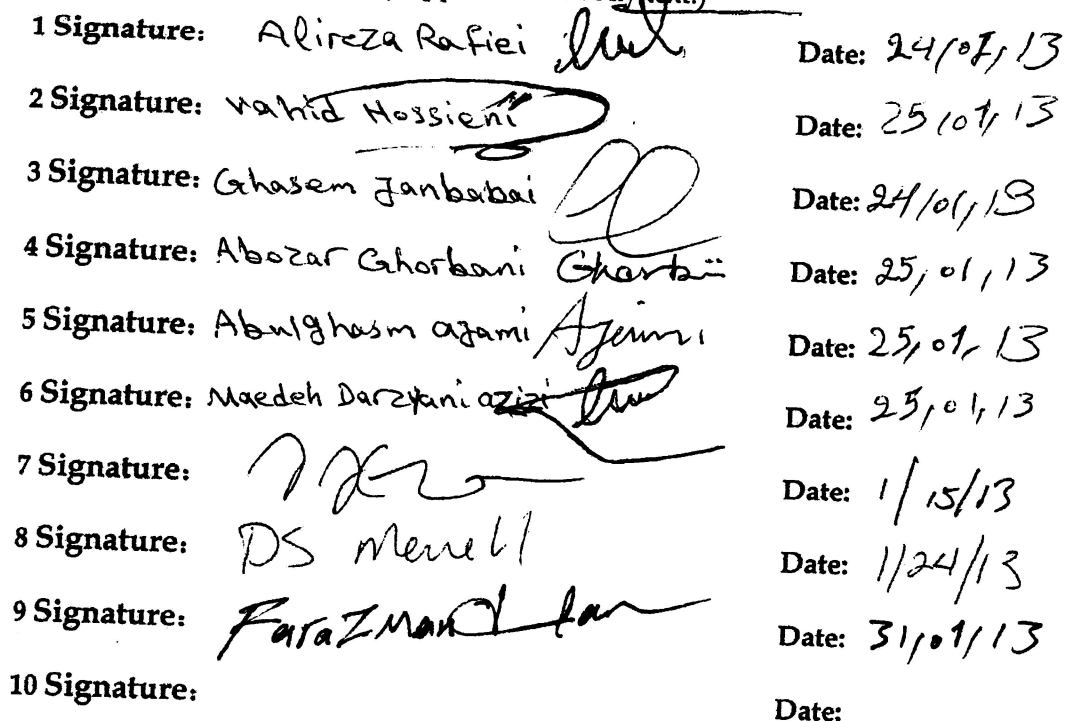 1 Signature: Alireza Rafiei Date: 24/01/13
2 Signature: Vahid Hossieni Date: 25/01/13
3 Signature: Ghasem Janbabai Date: 24/01/13
4 Signature: Abozar Ghorbani Ghorbani Date: 25,01,13
5 Signature: Abulghasm ajami Ajami Date: 25,01,13
6 Signature: Maedeh Darzyani azizi Date: 25,01,13
7 Signature: Date: 1/15/13
8 Signature: DS Merrell Date: 1/24/13
9 Signature: Farazmand Date: 31,01/13
10 Signature: Date: